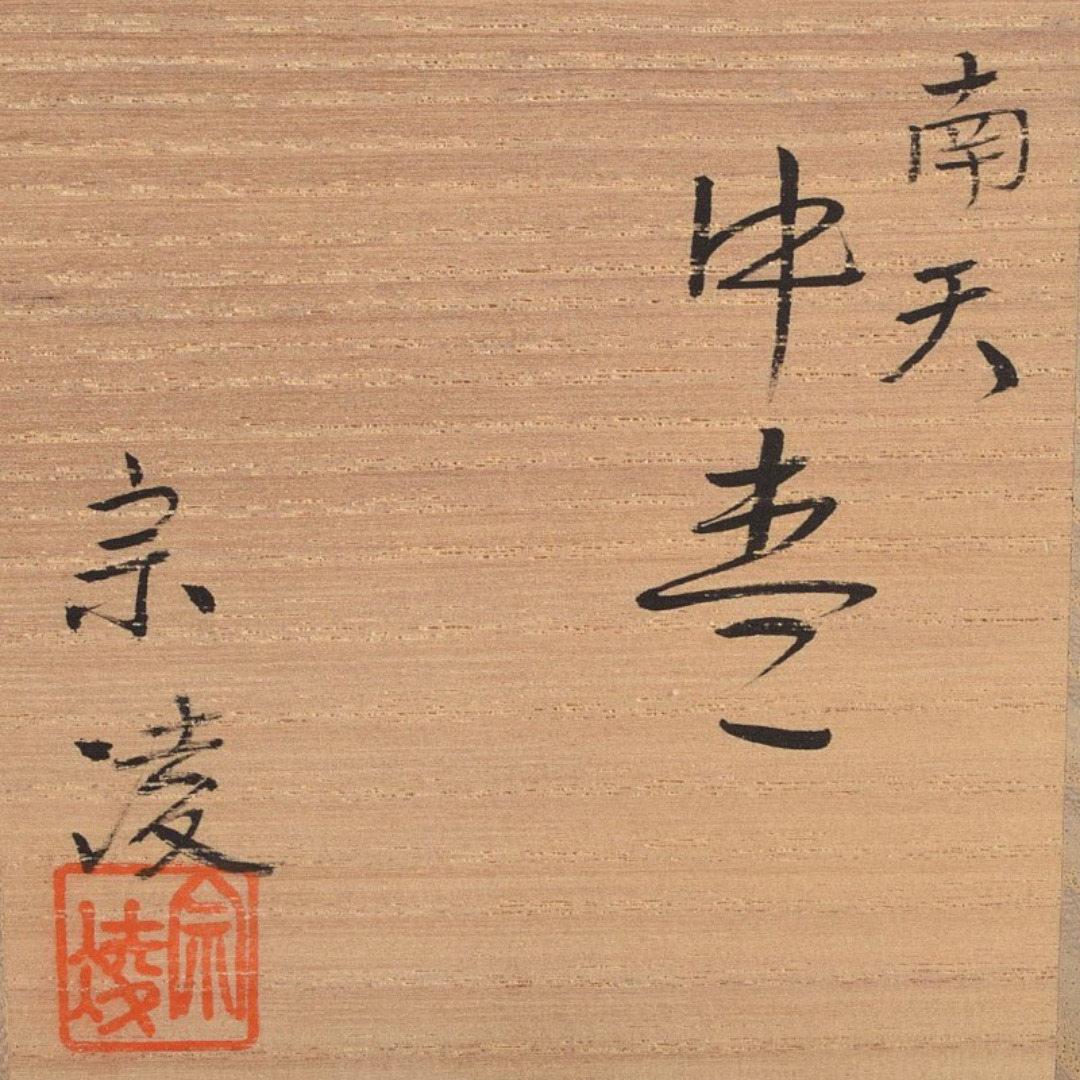 南天
中棗
宗凌
宗凌